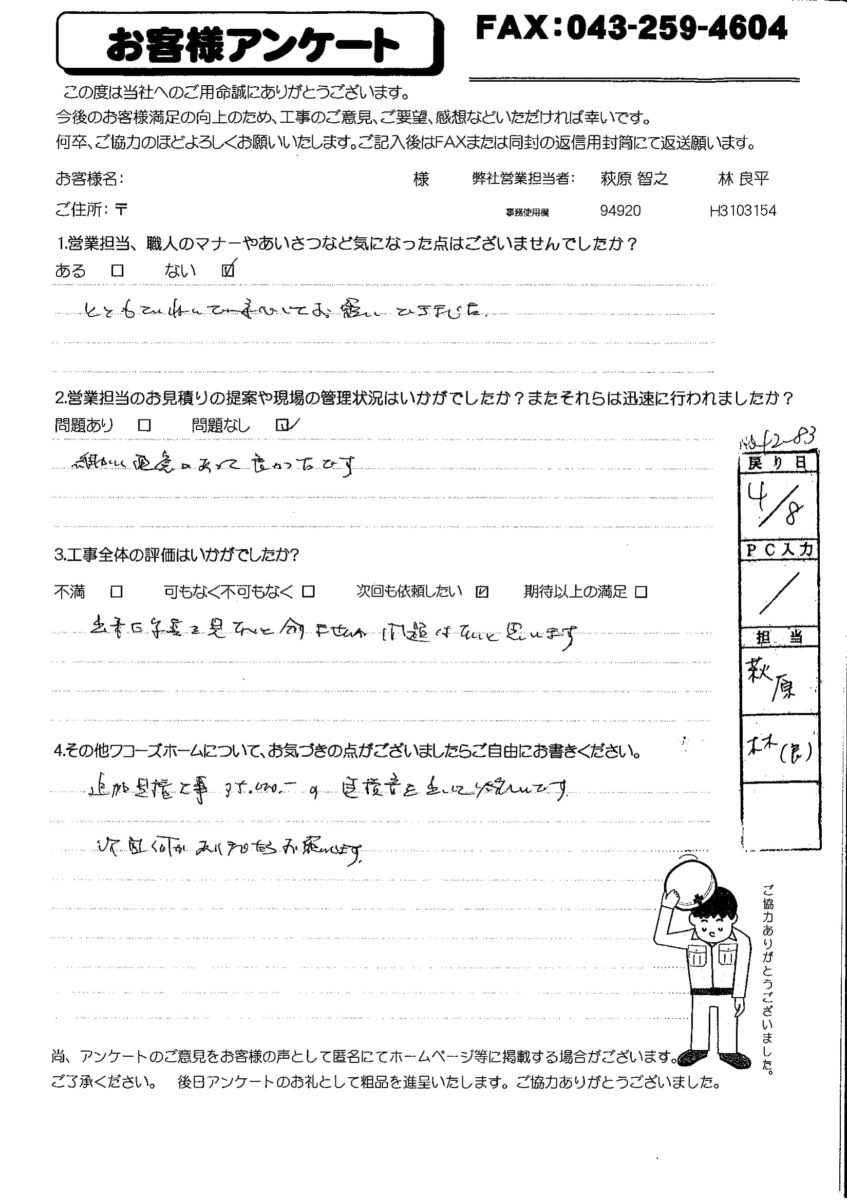 お客様アンケート
FAX:043-259-4604
この度は当社へのご用命誠にありがとうございます。
今後のお客様満足の向上のため、工事のご意見、ご要望、感想などいただければ幸いです。
何卒、ご協力のほどよろしくお願いいたします。ご記入後はFAXまたは同封の返信用封筒にて返送願います。
お客様名: 様 弊社営業担当者: 萩原 智之 林 良平
ご住所:〒 事務使用欄 94920 H3103154
1.営業担当、職人のマナーやあいさつなど気になった点はございませんでしたか?
ある □ ない ☑
2.営業担当のお見積りの提案や現場の管理状況はいかがでしたか?またそれらは迅速に行われましたか?
問題あり □ 問題なし ☑
細かい配慮があって良かったです
3.工事全体の評価はいかがでしたか?
不満 □ 可もなく不可もなく □ 次回も依頼したい ☑ 期待以上の満足 □
問題はないと思います
4.その他ワコーズホームについて、お気づきの点がございましたらご自由にお書きください。
追加 工事 の
お願いします。
12-83
戻り日
4/8
PC入力
/
担当
萩原
林(良)
ご協力ありがとうございました。
尚、アンケートのご意見をお客様の声として匿名にてホームページ等に掲載する場合がございます。
ご了承ください。 後日アンケートのお礼として粗品を進呈いたします。ご協力ありがとうございました。